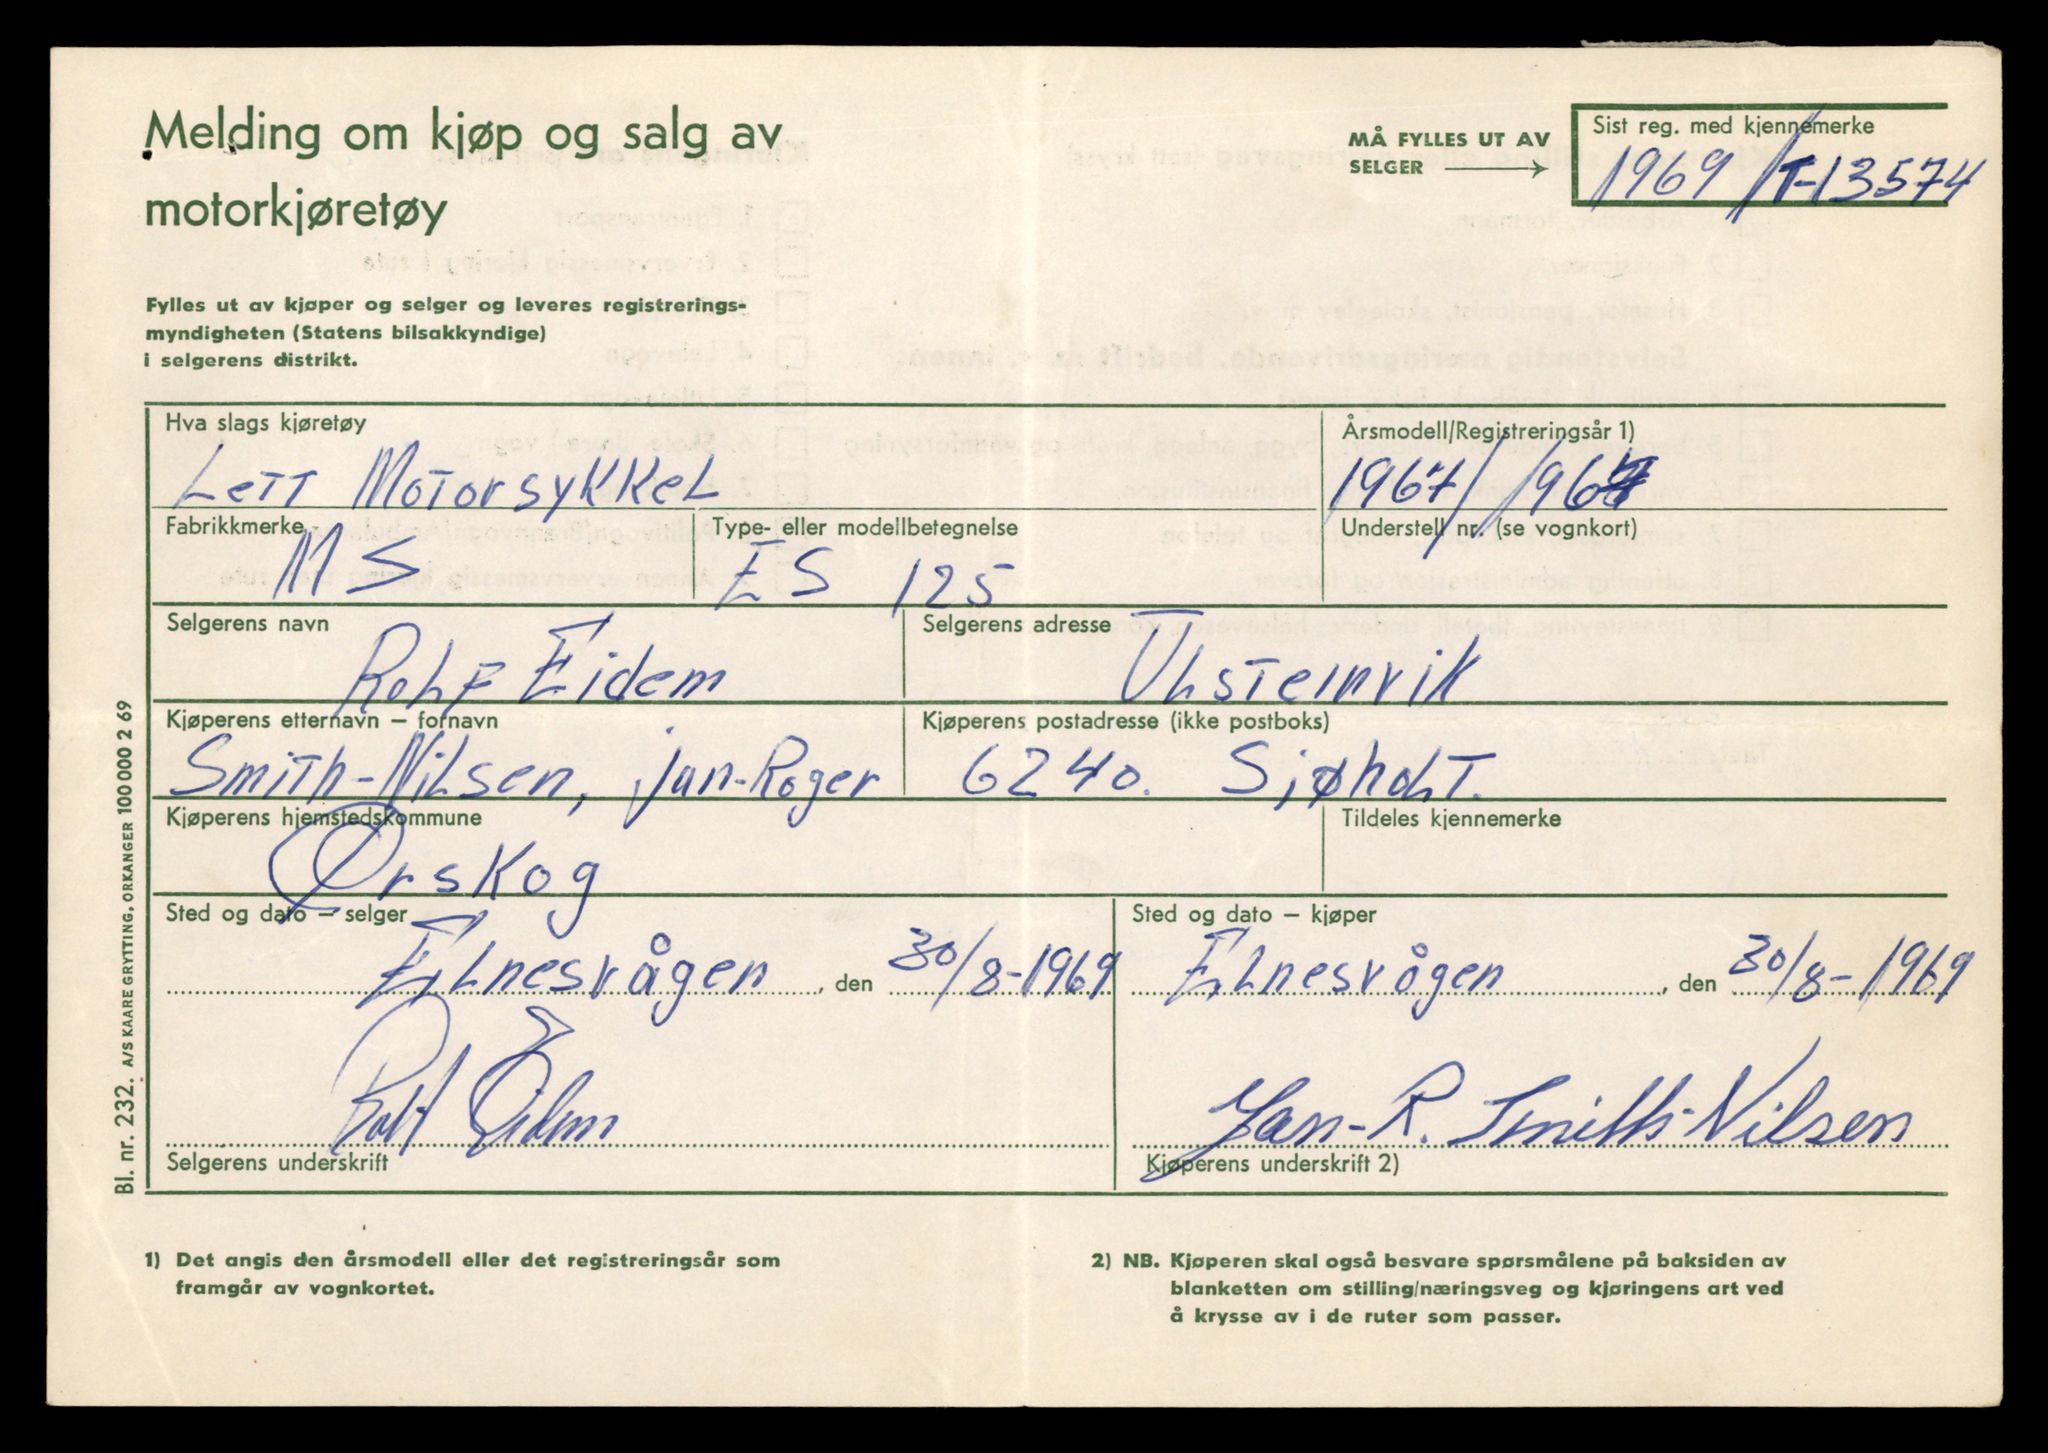 Melding om kjøp og salg av
motorkjøretøy
MÅ FYLLES UT AV
SELGER
Sist reg. med kjennemerke
1969 / T-13574
Fylles ut av kjøper og selger og leveres registrerings-
myndigheten (Statens bilsakkyndige)
i selgerens distrikt.
Hva slags kjøretøy
Lett Motorsykkel
Årsmodell/Registreringsår 1)
1967/1967
Fabrikkmerke
MS
Type- eller modellbetegnelse
ES 125
Understell nr. (se vognkort)
Selgerens navn
Rolf Eidem
Selgerens adresse
Ulsteinvik
Kjøperens etternavn – fornavn
Smith-Nilsen, Jan-Roger
Kjøperens postadresse (ikke postboks)
6240. Sjøholt.
Kjøperens hjemstedskommune
Ørskog
Tildeles kjennemerke
Sted og dato – selger
Elnesvågen, den 30/8-1969
Sted og dato – kjøper
Elnesvågen, den 30/8-1969
Rolf Eidem
Selgerens underskrift
Jan-R. Smith-Nilsen
Kjøperens underskrift 2)
1) Det angis den årsmodell eller det registreringsår som
framgår av vognkortet.
2) NB. Kjøperen skal også besvare spørsmålene på baksiden av
blanketten om stilling/næringsveg og kjøringens art ved
å krysse av i de ruter som passer.
Bl. nr. 232. A/S KAARE GRYTTING, ORKANGER 100 000 2 69